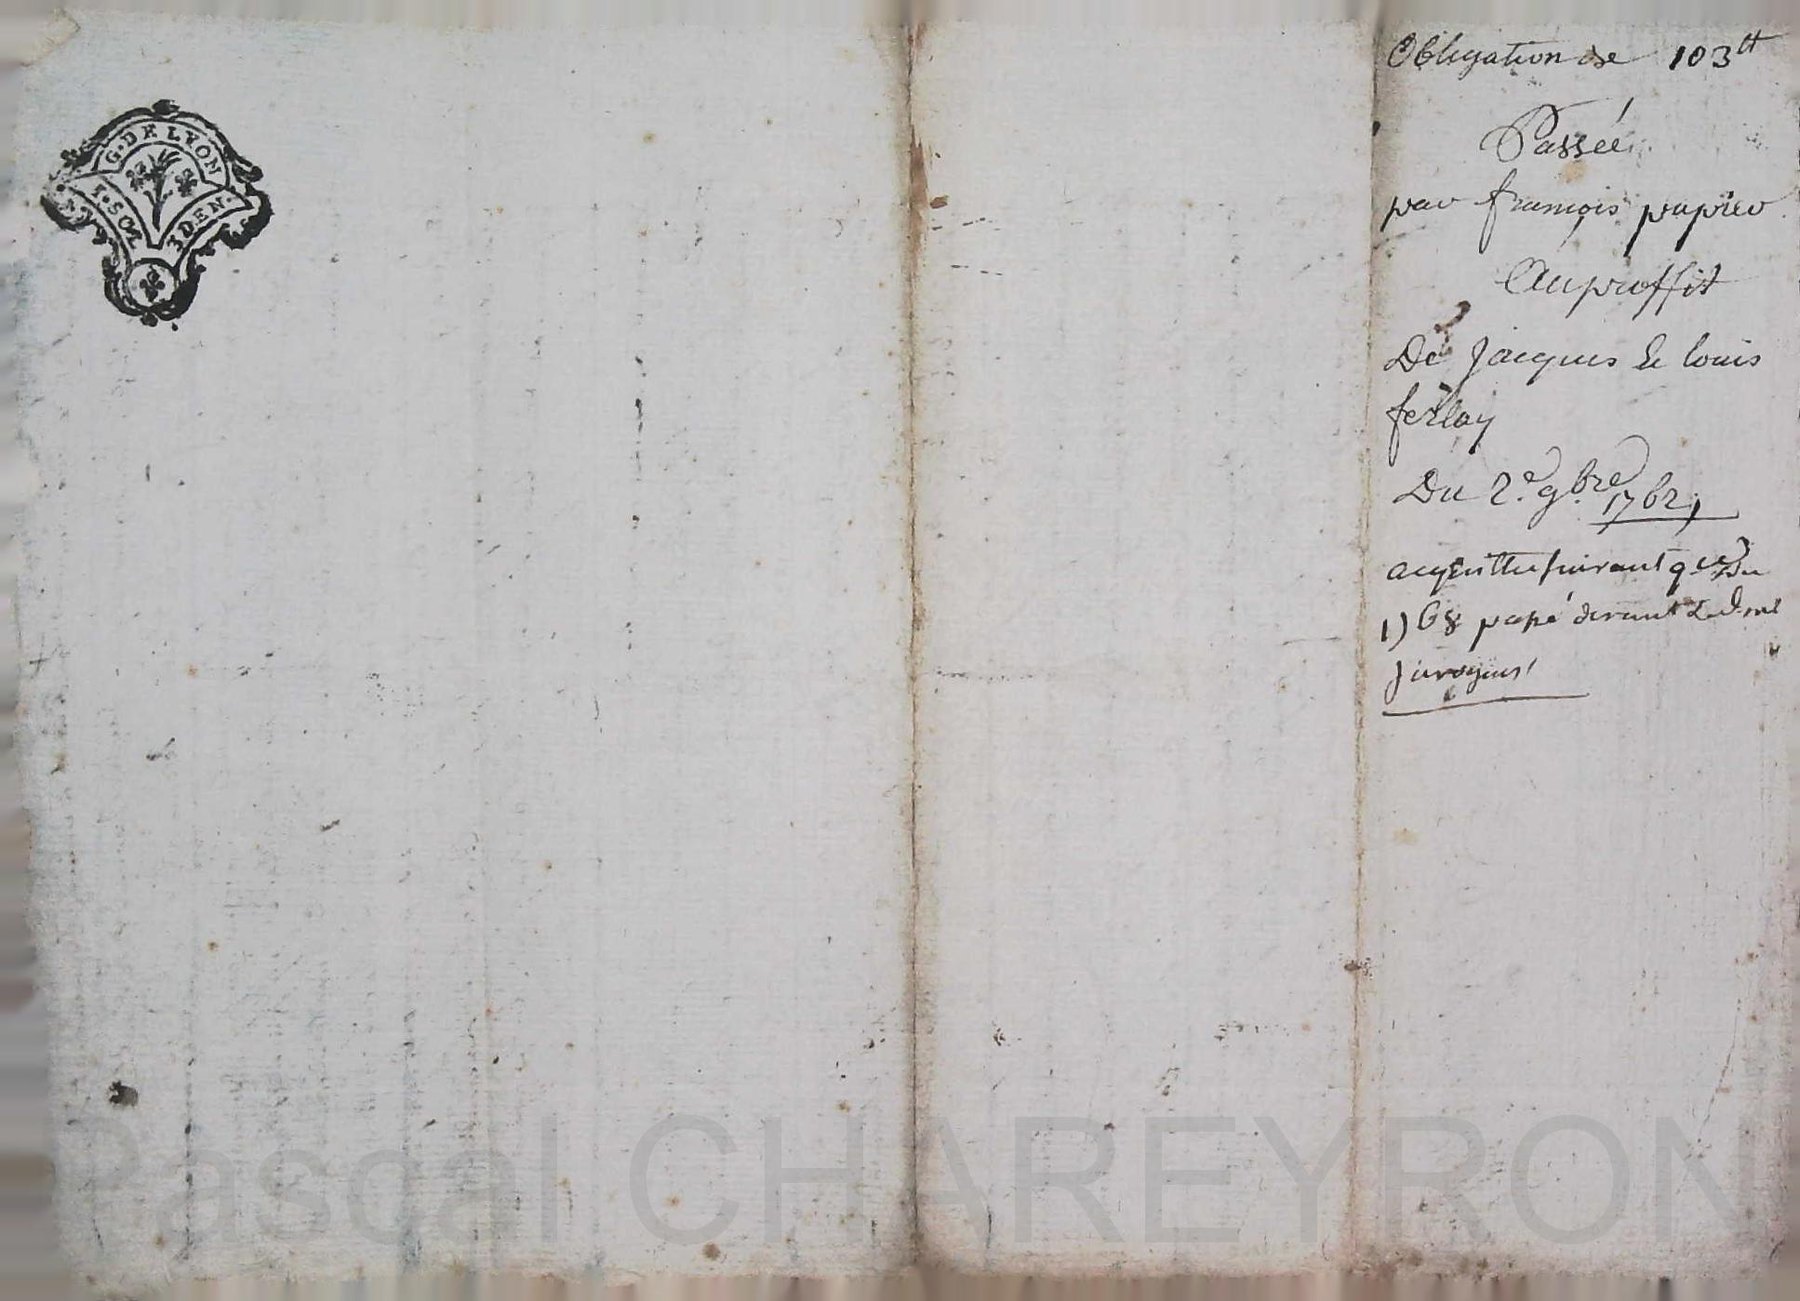 G. DE LYON
1. SOL
DEN.
Obligation de 103 tt
Passée
par françois papier
Au proffit
De Jacques & louis
ferlay
Du 2e 9bre 1762,
acquittée suivant q.ce Du
1768 passé devant
Pascal CHAREYRON